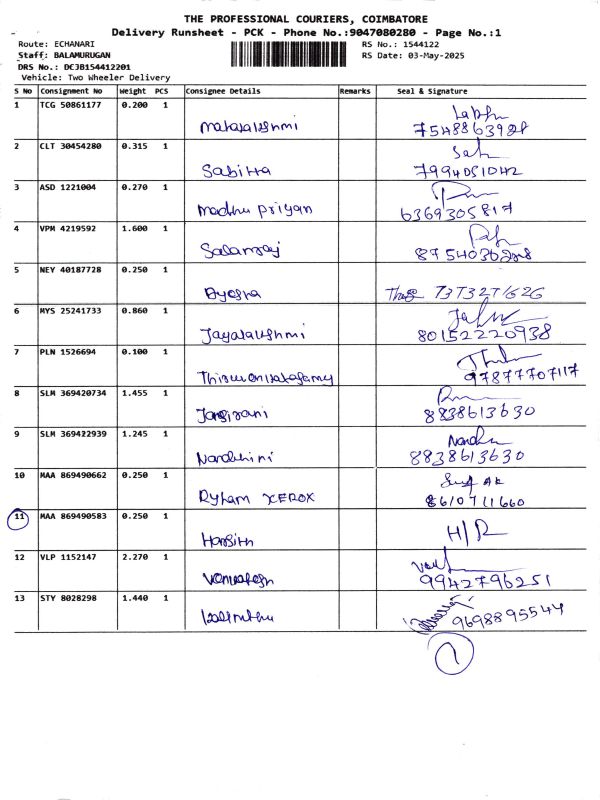 THE PROFESSIONAL COURIERS, COIMBATORE
Delivery Runsheet - PCK - Phone No.:9047080280 - Page No.:1
Route: ECHANARI
RS No.: 1544122
Staff: BALAMURUGAN
RS Date: 03-May-2025
DRS No.: DCJB154412201
Vehicle: Two Wheeler Delivery
S No Consignment No Weight PCS Consignee Details Remarks Seal & Signature
1 TCG 50861177 0.200 1
Mahalakshmi
2 CLT 30454280 0.315 1
Sabitta 7994051042
3 ASD 1221004 0.270 1
Madhu priyan 6369305817
4 VPM 4219592 1.600 1
5 NEY 40187728 0.250 1
Ayesha
6 MYS 25241733 0.860 1
Jayalakshmi 80152220938
7 PLN 1526694 0.100 1
97877707117
8 SLM 369420734 1.455 1
8838613630
9 SLM 369422939 1.245 1
Nandhini
8838613630
10 MAA 869490662 0.250 1
XEROX 8610711660
11 MAA 869490583 0.250 1 H/R
12 VLP 1152147 2.270 1
9942796251
13 STY 8028298 1.440 1
9698895544
1